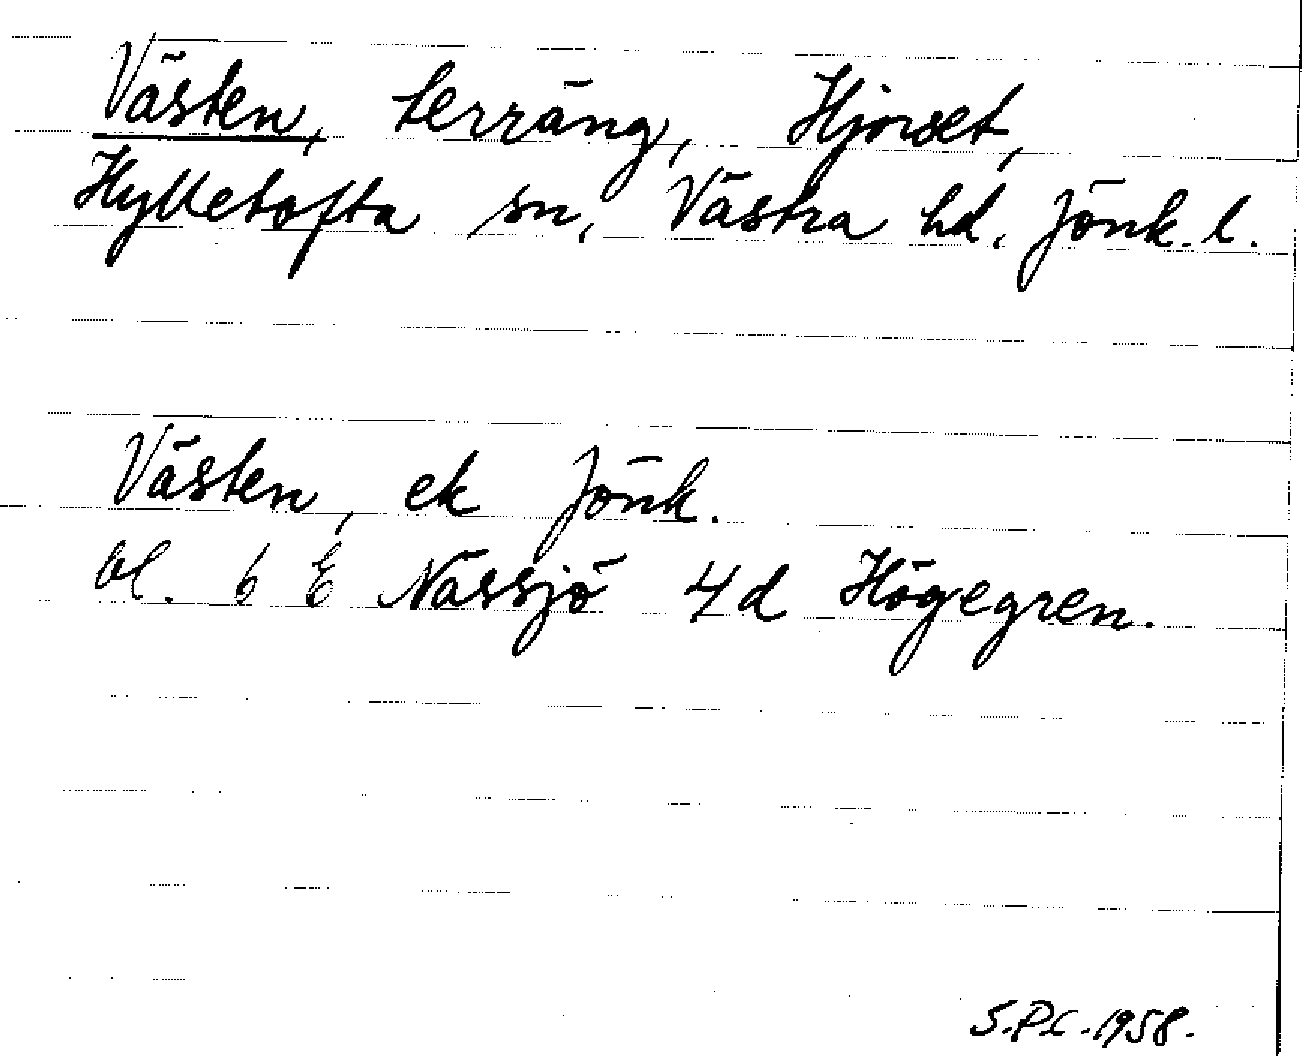 Västen, terräng, Hjorset,
Hylletofta sn, Västra hd. Jönk. l.
Västen, ek Jönk.
bl. 6 E Nässjö 4d Högegren.
S.P.C. 1958.